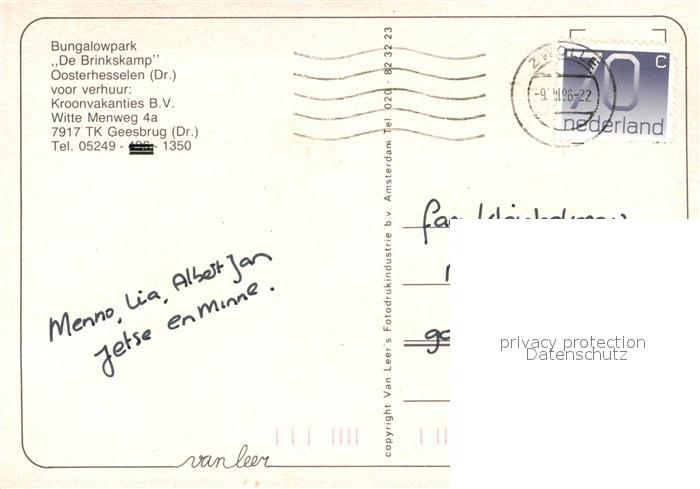 Bungalowpark
„De Brinkskamp"
Oosterhesselen (Dr.)
voor verhuur:
Kroonvakanties B.V.
Witte Menweg 4a
7917 TK Geesbrug (Dr.)
Tel. 05249 - 1350
copyright Van Leer's Fotodrukindustrie b.v. Amsterdam Tel. 020 - 82 32 23
ZWOLLE
70 c
nederland
fam
Menno, Lia, Albert Jan
Jetse en Minne.
privacy protection
Datenschutz
van leer